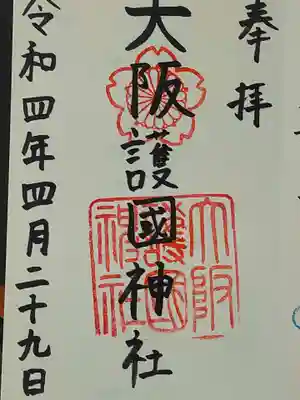 奉拝
大阪護國神社
大阪護国神社
令和四年四月二十九日